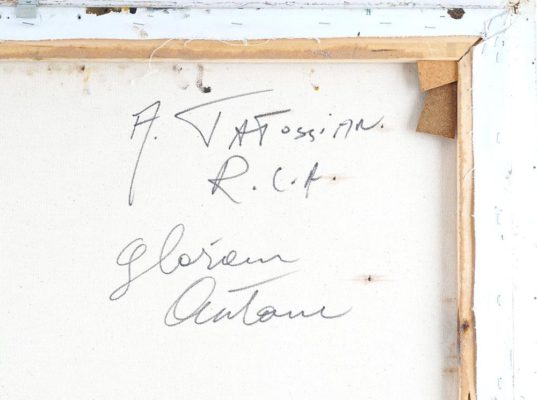 A. TATOSSIAN.
R.C.A.
glorieux
Automne